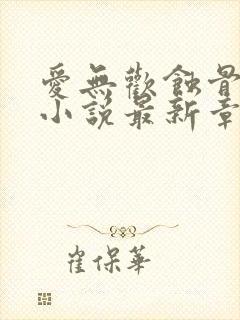 愛無歡蝕骨
小說最新章
崔保華